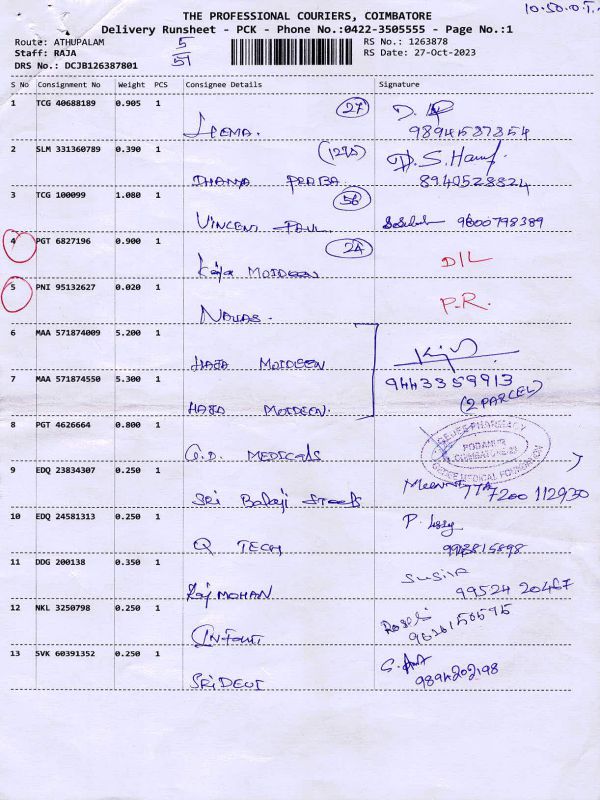 10.50.0.T.
THE PROFESSIONAL COURIERS, COIMBATORE
Delivery Runsheet - PCK - Phone No.:0422-3505555 - Page No.:1
Route: ATHUPALAM
Staff: RAJA
DRS No.: DCJB126387801
5
51
RS No.: 1263878
RS Date: 27-Oct-2023
S No Consignment No Weight PCS Consignee Details Signature
1 TCG 40688189 0.905 1 27
9894587854
2 SLM 331360789 0.390 1 DHANYA PRABA (1275)
8940528824
3 TCG 100099 1.080 1 VINCENT PAUL 56 9600798389
4 PGT 6827196 0.900 1 Kaja MOIDEEN 2A D/L
5 PNI 95132627 0.020 1 NAWAS. P-R.
6 MAA 571874009 5.200 1 HAJA MOIDEEN
7 MAA 571874550 5.300 1 HAJA MOIDEEN. 9443359913
(2 PARCEL)
8 PGT 4626664 0.800 1 G.D. MEDICALS PHARMACY
PODANUR
COIMBATORE-23
MEDICAL FOUNDATION
9 EDQ 23834307 0.250 1 SRI Balaji Steels 7200 112930
10 EDQ 24581313 0.250 1 Q TECH
11 DDG 200138 0.350 1 Raj MOHAN SUSILA
99524 20467
12 NKL 3250798 0.250 1 INFANT
13 SVK 60391352 0.250 1 SRIDEVI
9894202198